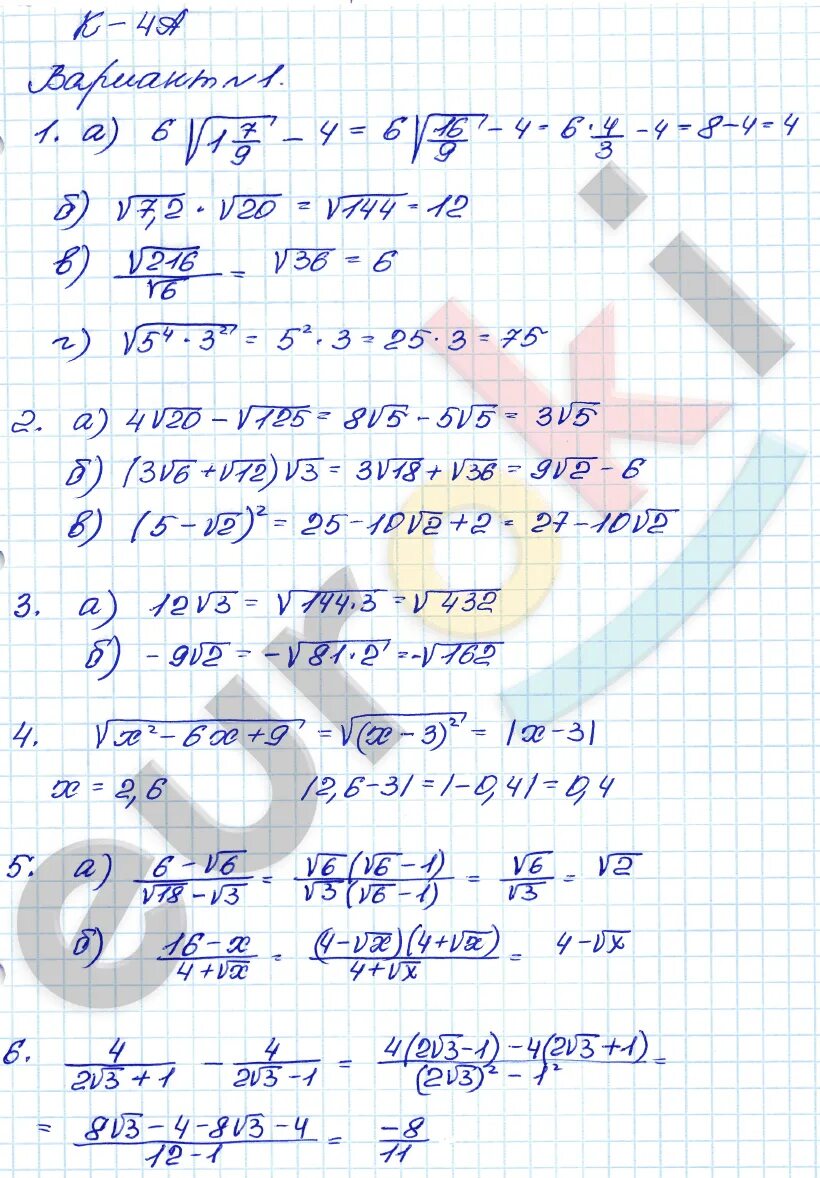 К – 4А
Вариант №1.
1. а) 6√(1 7/9) – 4 = 6√(16/9) – 4 = 6·4/3 – 4 = 8 – 4 = 4
б) √7,2 · √20 = √144 = 12
в) √216/√6 = √36 = 6
г) √(5⁴ · 3²) = 5² · 3 = 25 · 3 = 75
2. а) 4√20 – √125 = 8√5 – 5√5 = 3√5
б) (3√6 + √12)√3 = 3√18 + √36 = 9√2 – 6
в) (5 – √2)² = 25 – 10√2 + 2 = 27 – 10√2
3. а) 12√3 = √(144·3) = √432
б) -9√2 = -√(81·2) = -√162
4. √(x² – 6x + 9) = √((x – 3)²) = |x – 3|
x = 2,6 |2,6 – 3| = |–0,4| = 0,4
5. а) (6 – √6)/(√18 – √3) = (√6(√6 – 1))/(√3(√6 – 1)) = √6/√3 = √2
б) (16 – x)/(4 + √x) = ((4 – √x)(4 + √x))/(4 + √x) = 4 – √x
6. 4/(2√3 + 1) – 4/(2√3 – 1) = (4(2√3 – 1) – 4(2√3 + 1))/((2√3)² – 1²) =
= (8√3 – 4 – 8√3 – 4)/(12 – 1) = –8/11
euroki